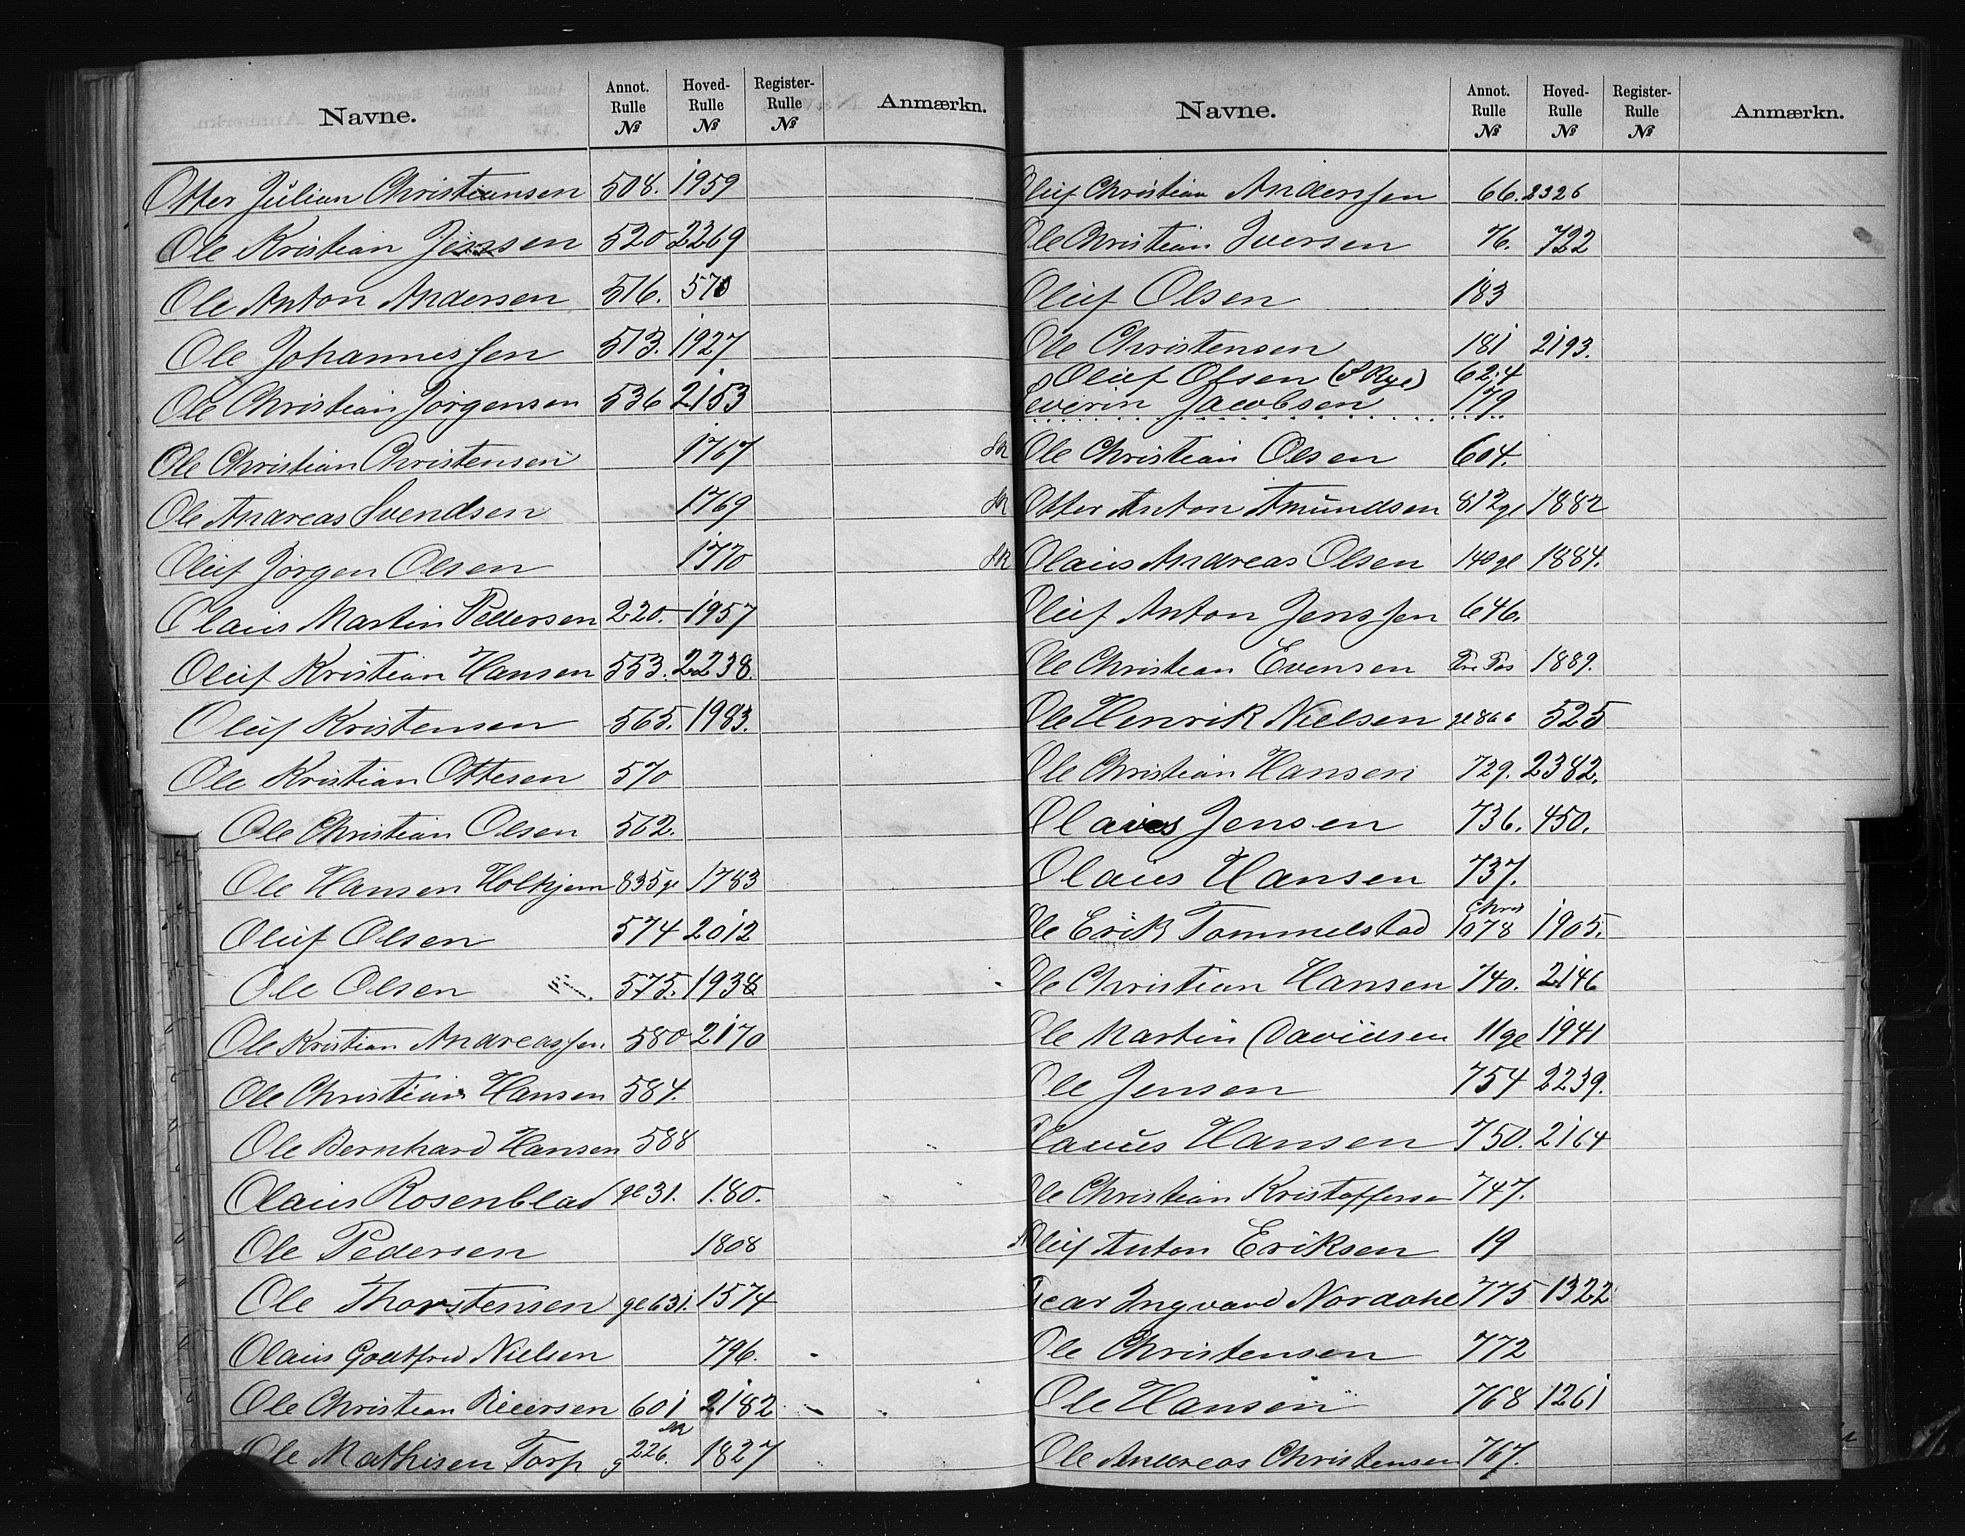 Navne. Annot. Rulle № Hoved-Rulle № Register-Rulle № Anmærkn.
Otter Julian Christiansen 508. 1959
Ole Kristian Jenssen 520 2269
Ole Anton Andersen 516. 570
Ole Johannessen 513. 1927
Ole Christian Jörgensen 536 2153
Ole Christian Christensen 1767
Ole Andreas Svendsen 1769
Oluf Jörgen Olsen 1770
Olaus Martin Pedersen 220. 1957
Oluf Kristian Hansen 553. 2238.
Oluf Kristensen 565. 1983.
Ole Kristian Ottesen 570
Ole Christian Olsen 562.
Ole Hansen Holtkjern 835 gl 1783
Oluf Olsen 574 2012
Ole Olsen 575. 1938
Ole Kristian Andreassen 580 2170
Ole Christian Hansen 584.
Ole Bernhard Hansen 588
Olaus Rosenblad gl 31. 180.
Ole Pedersen 1808
Ole Thorstensen gl 631. 1574
Olaus Godtfred Nielsen 796.
Ole Christian Reiersen 601 2182
Ole Mathisen Torp g 226. 1827
Navne. Annot. Rulle № Hoved-Rulle № Register-Rulle № Anmærkn.
Oluf Christian Anderssen 66. 2326
Ole Christian Iversen 76. 722
Oluf Olsen 183
Ole Christensen 181 2193.
Oluf Olsen (S Rye) 624
Severin Jacobsen 179
SR Ole Christian Olsen 604.
SR Otter Anton Amundsen 812 gl 1882
SR Olaus Andreas Olsen 140 gl 1884.
Oluf Anton Jenssen 646.
Ole Christian Evensen 1889.
Ole Henrik Nielsen gl 866 525
Ole Christian Hansen 729. 2382.
Olaves Jensen 736. 450.
Olaus Hansen 737.
Chris
Ole Erik Tommelstad 1078 1905.
Ole Christian Hansen 740. 2146
Ole Martin Davidsen 11 gl 1941
Ole Jensen 754 2239.
Olaus Hansen 750. 2164
Ole Christian Kristoffersen 747.
Oluf Anton Eriksen 19
Oscar Ingvard Nordahl 775 1322
Ole Christensen 772
Ole Hansen 768 1261
Ole Andreas Christensen 767.